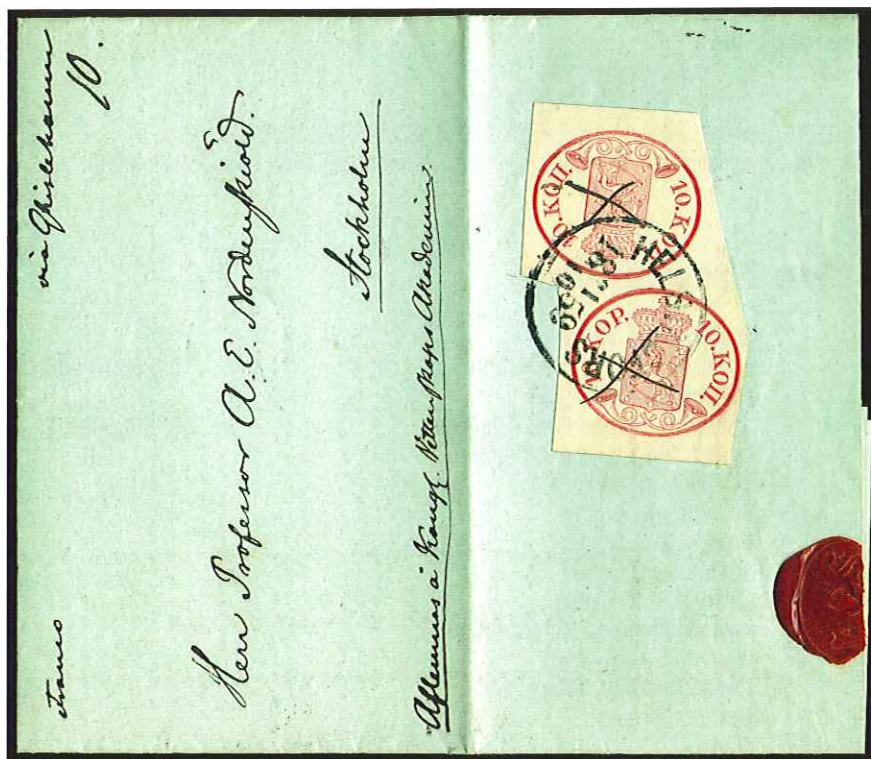 Franco
via Grislehamn
10.
Herr Professor A. E. Nordenskiöld.
Stockholm
Aflemnas å Kongl. Vetenskaps Akademin.
10.КОП. 10.KOP.
10.KOP. 10.КОП.
HELSINGFORS